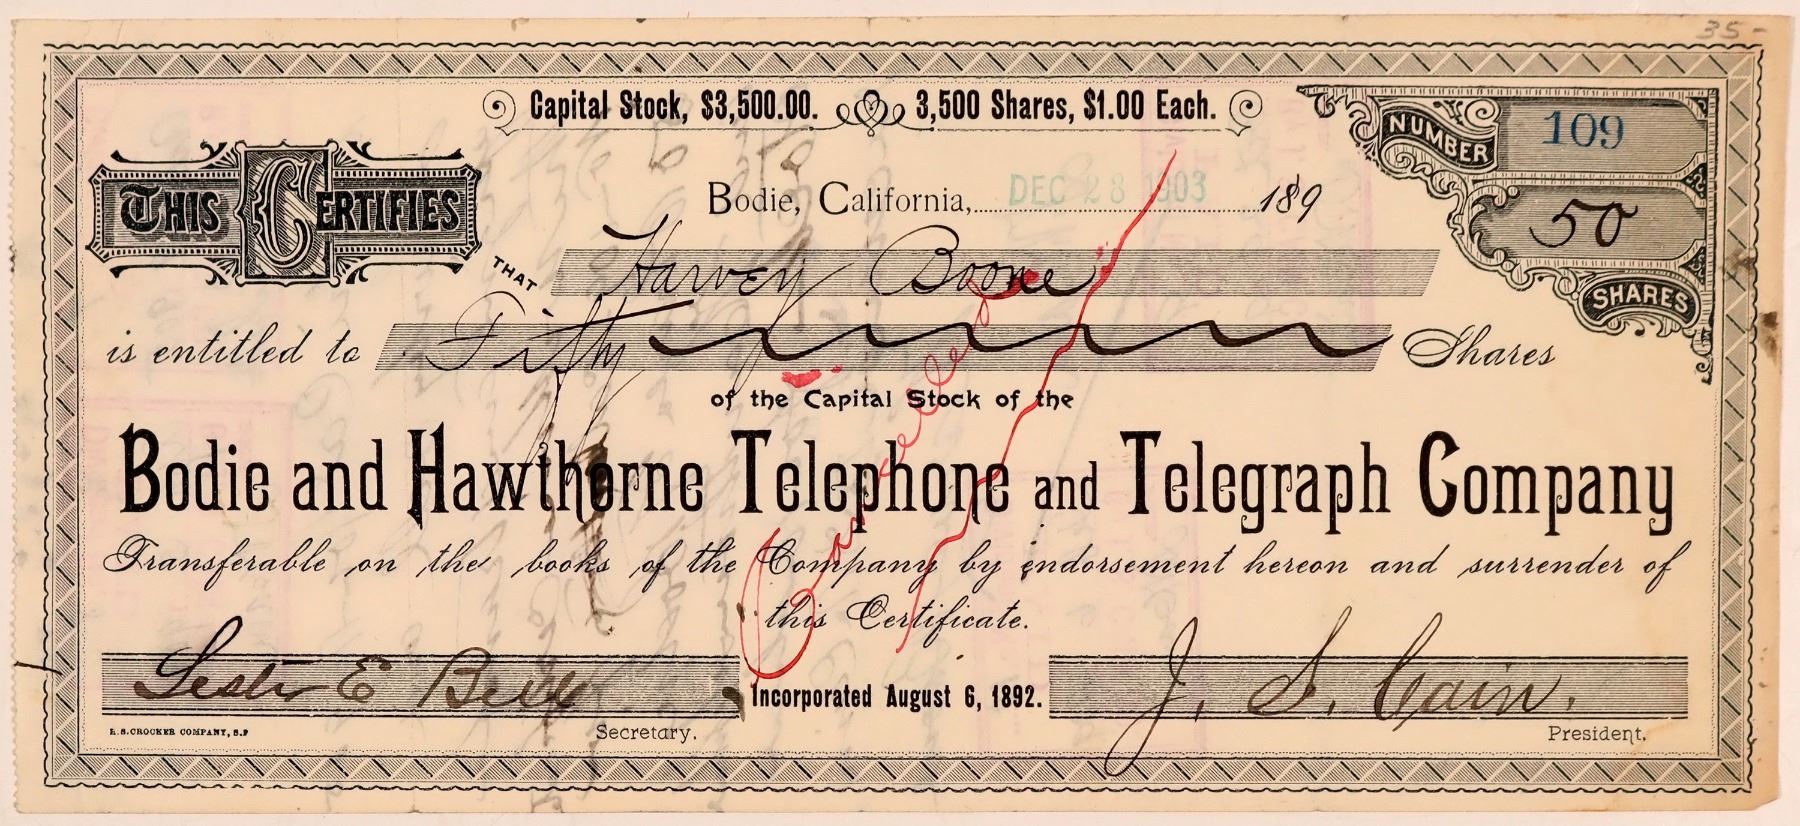 35-
Capital Stock, $3,500.00. 3,500 Shares, $1.00 Each.
NUMBER 109
Bodie, California, DEC 28 1903 189
50 SHARES
THIS CERTIFIES
THAT Harvey Boone
is entitled to Fifty Shares
of the Capital Stock of the
Bodie and Hawthorne Telephone and Telegraph Company
Transferable on the books of the Company by endorsement hereon and surrender of
this Certificate.
Cancelled
Lester E Bell Incorporated August 6, 1892. J. S. Cain.
H.S.CROCKER COMPANY, S.F Secretary. President.